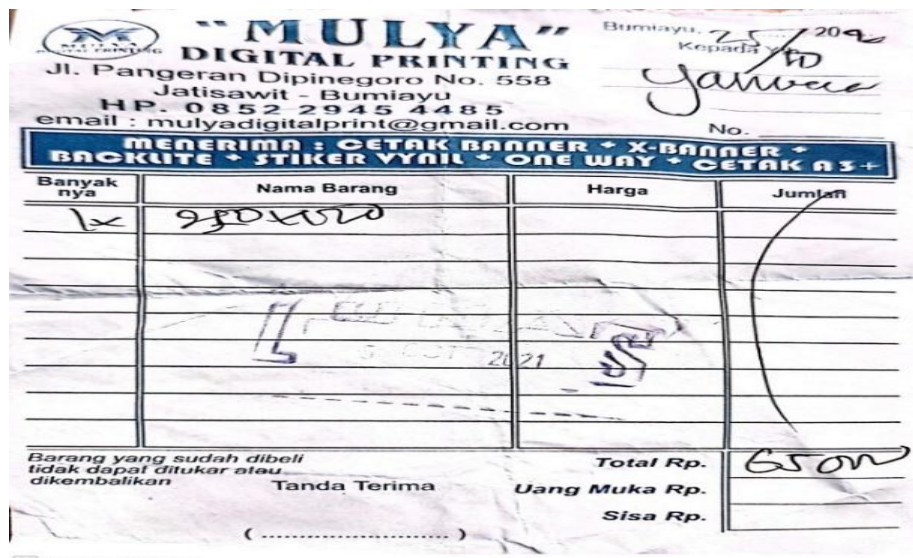 "MULYA"
DIGITAL PRINTING
Jl. Pangeran Dipinegoro No. 558
Jatisawit - Bumiayu
HP. 0852 2945 4485
email : mulyadigitalprint@gmail.com
Bumiayu, 25/10 20
Kepada Yth
No.
MENERIMA : CETAK BANNER + X-BANNER +
BACKLITE + STIKER VYNIL + ONE WAY + CETAK A3+
Banyak nya Nama Barang Harga Jumlah
1x
OCT 2021
Barang yang sudah dibeli
tidak dapat ditukar atau
dikembalikan
Tanda Terima
(........................)
Total Rp. 65000
Uang Muka Rp.
Sisa Rp.